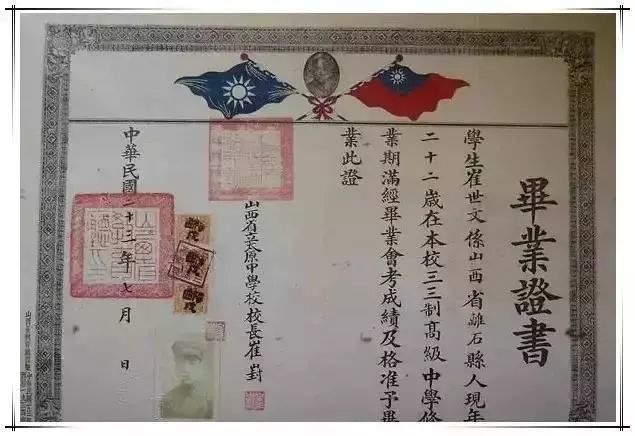 畢業證書
學生崔世文係山西省離石縣人現年
二十二歲在本校三三制高級中學修
業期滿經畢業會考成績及格准予畢
業此證
山西省立太原中學校校長崔 尌
中華民國二十三年七月 日